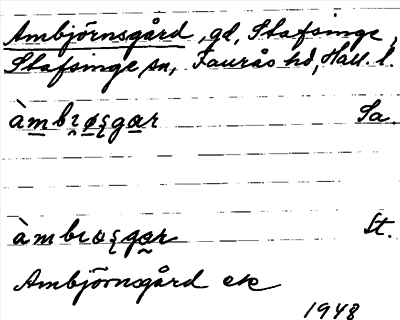 Ambjörnsgård, gd, Stafsinge,
Stafsinge sn, Faurås hd, Hall. l.
Sa.
St.
Ambjörnsgård ek
1948